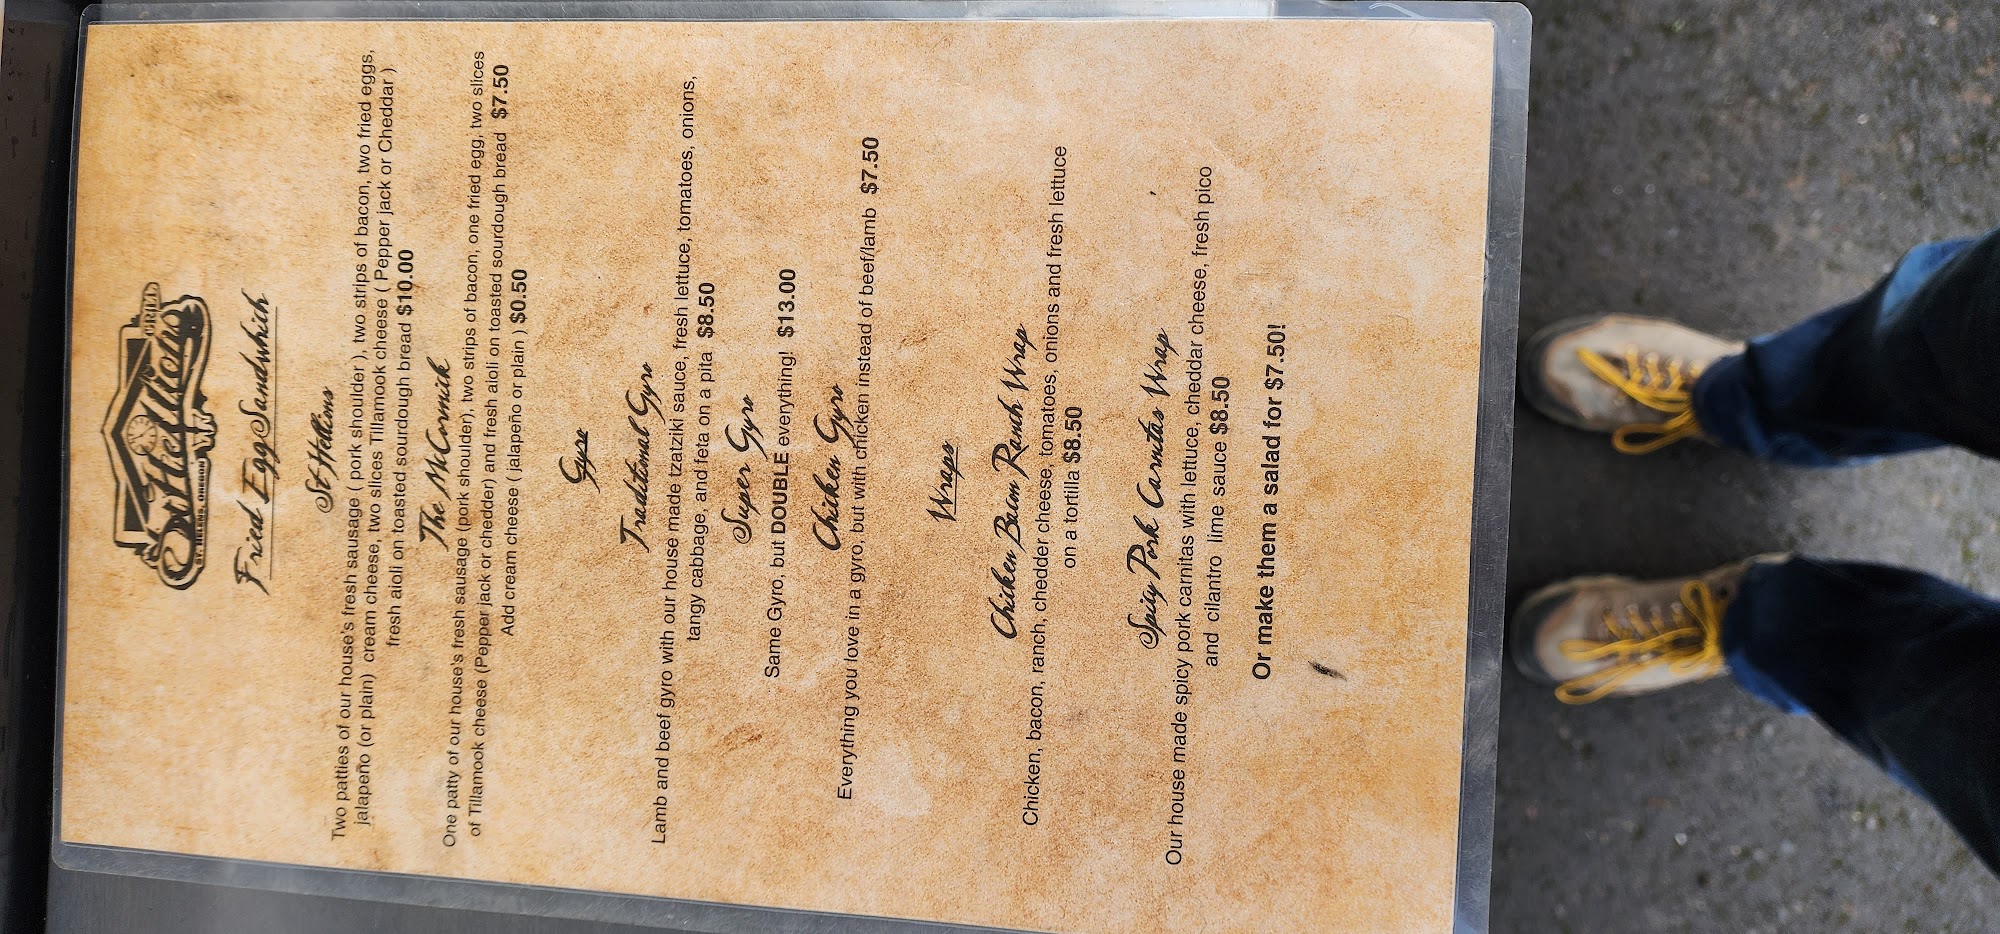 StHellions
GRILL
ST. HELENS, OREGON
Fried Egg Sandwhich
St Hellins
Two patties of our house's fresh sausage ( pork shoulder ), two strips of bacon, two fried eggs,
jalapeño (or plain) cream cheese, two slices Tillamook cheese ( Pepper jack or Cheddar )
fresh aioli on toasted sourdough bread $10.00
The McCormick
One patty of our house's fresh sausage (pork shoulder), two strips of bacon, one fried egg, two slices
of Tillamook cheese (Pepper jack or chedder) and fresh aioli on toasted sourdough bread $7.50
Add cream cheese ( jalapeño or plain ) $0.50
Gyro
Traditional Gyro
Lamb and beef gyro with our house made tzatziki sauce, fresh lettuce, tomatoes, onions,
tangy cabbage, and feta on a pita $8.50
Super Gyro
Same Gyro, but DOUBLE everything! $13.00
Chicken Gyro
Everything you love in a gyro, but with chicken instead of beef/lamb $7.50
Wraps
Chicken Bacon Ranch Wrap
Chicken, bacon, ranch, chedder cheese, tomatoes, onions and fresh lettuce
on a tortilla $8.50
Spicy Pork Carnitas Wrap
Our house made spicy pork carnitas with lettuce, cheddar cheese, fresh pico
and cilantro lime sauce $8.50
Or make them a salad for $7.50!